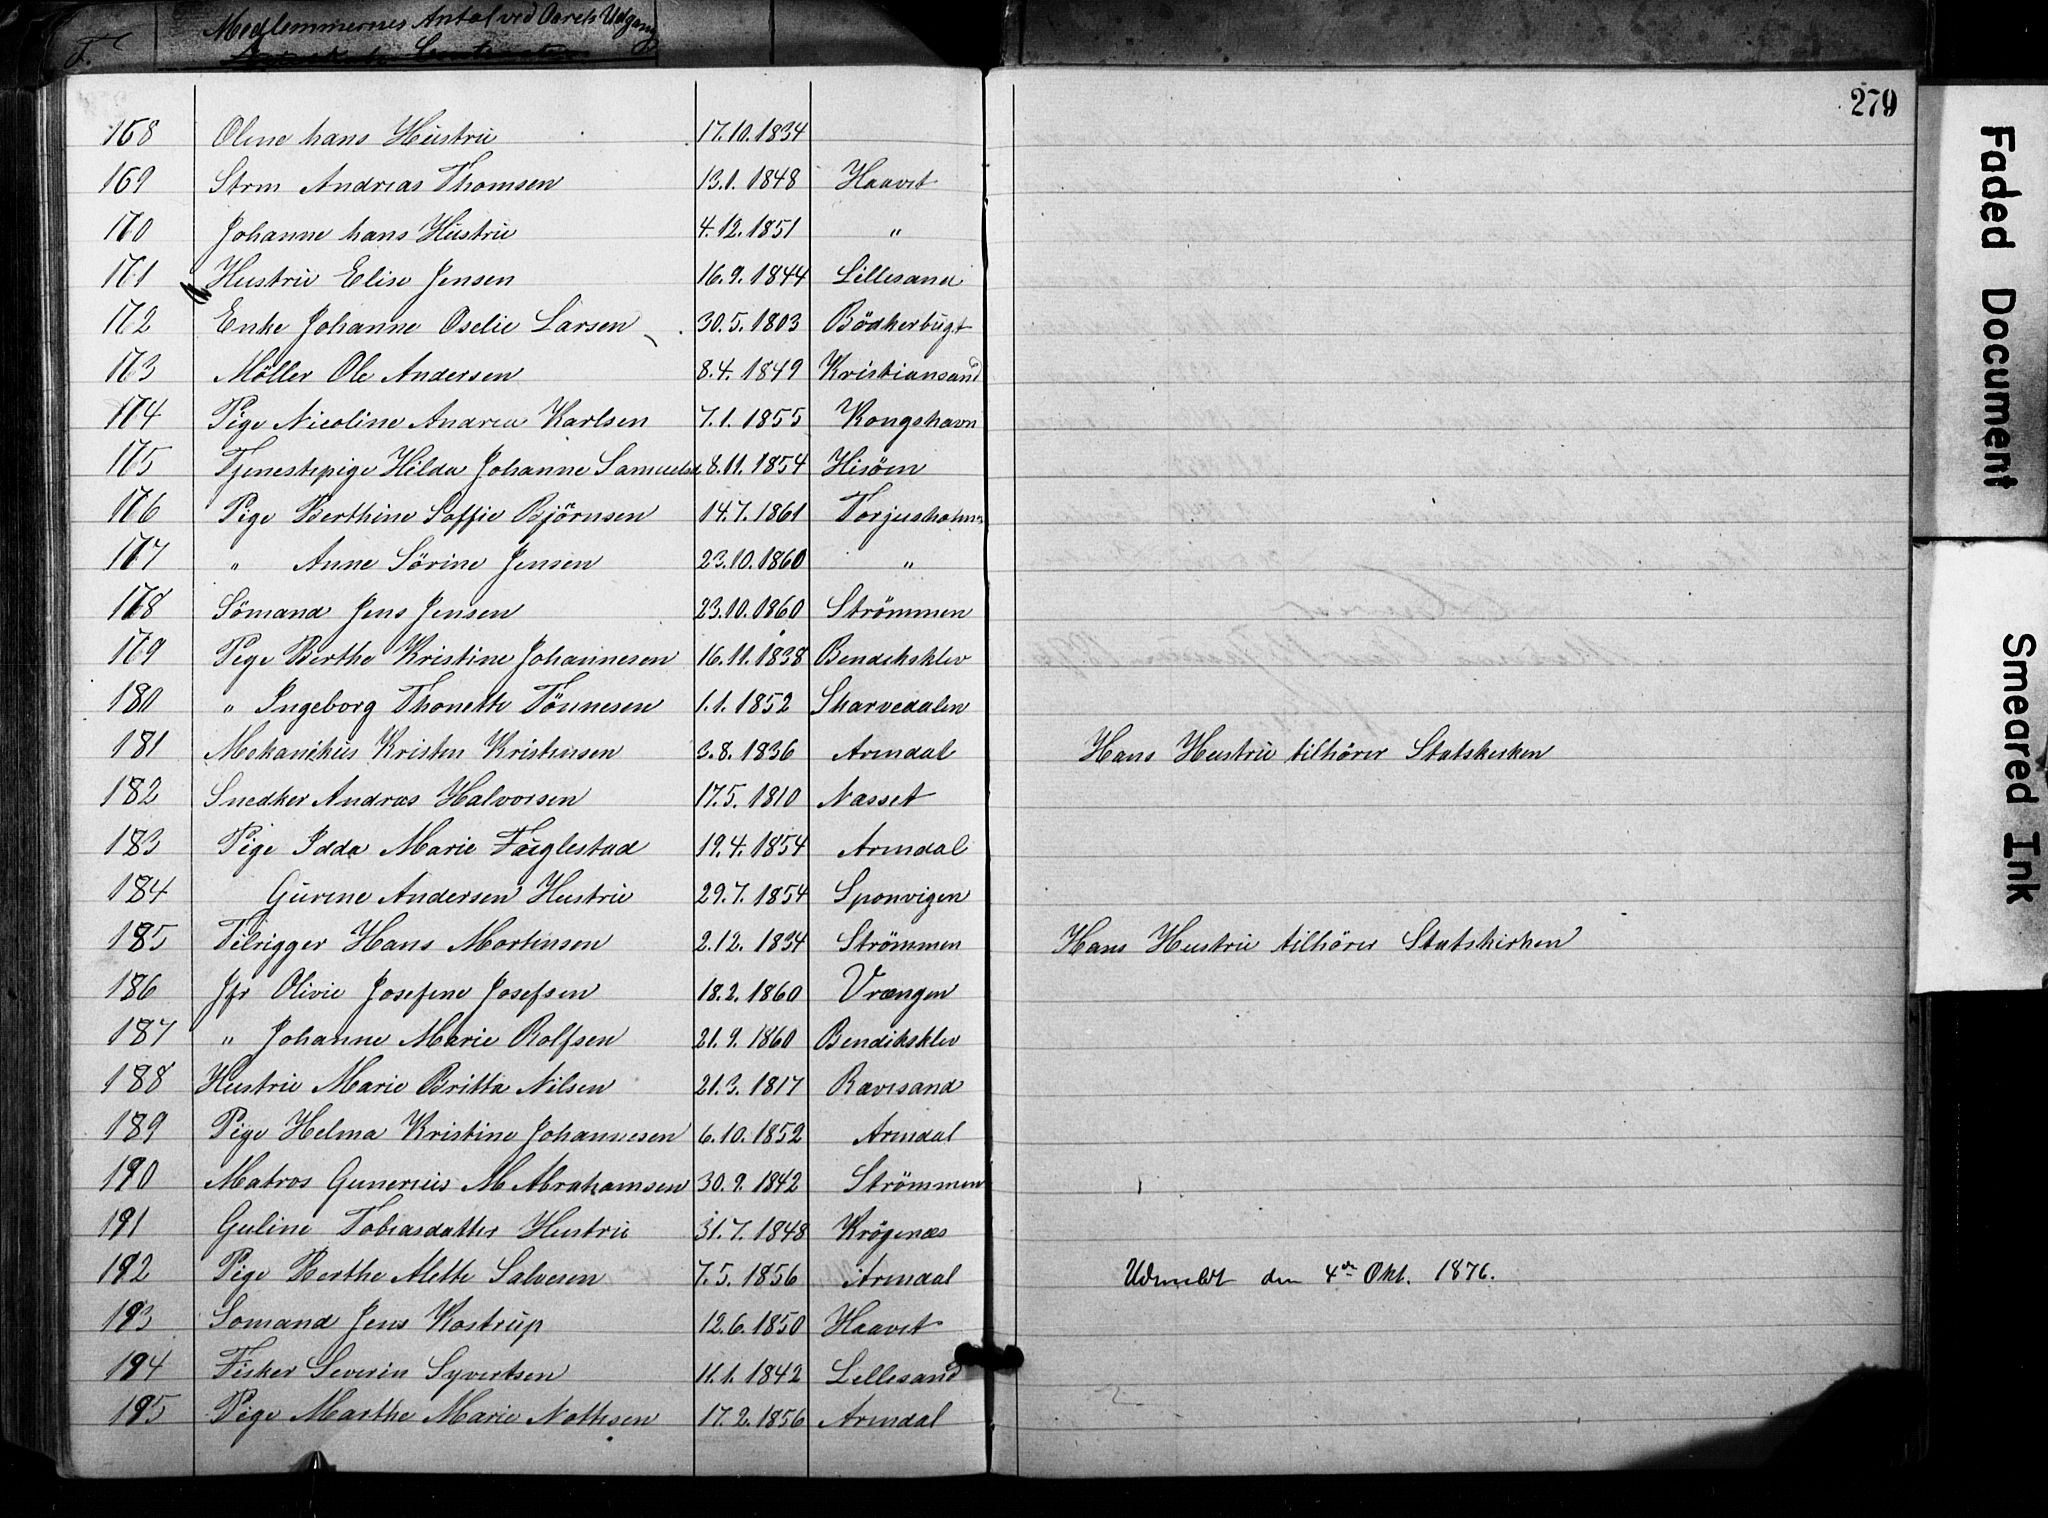 Medlemmernes Antal ved Aarets Udgang
279
168 Oline hans Hustru 17.10.1834
169 Strm Andreas Thomsen 13.1.1848 Haavet
170 Johanne hans Hustru 4.12.1851 "
171 Hustru Elise Jensen 16.9.1844 Lillesand
172 Enke Johanne Oselie Larsen 30.5.1803 Bödkerbugt
173 Möller Ole Andersen 8.4.1849 Kristiansand
174 Pige Nicoline Andrea Karlsen 7.1.1855 Kongshavn
175 Tjenestepige Hilda Johanne Samuelsd 8.11.1854 Hisöen
176 Pige Berthine Soffie Björnsen 14.7.1861 Torjusholmen
177 " Anne Sörine Jensen 23.10.1860 "
178 Sömand Jens Jensen 23.10.1860 Strömmen
179 Pige Berthe Kristine Johannesen 16.11.1838 Bendiksklev
180 " Ingeborg Thonette Tönnesen 1.1.1852 Skarvedalen
181 Mekanikus Kristen Kristensen 3.8.1836 Arendal Hans Hustru tilhörer Statskirken
182 Snedker Andras Halvorsen 17.5.1810 Næsset
183 Pige Idda Marie Fuglestad 19.4.1854 Arendal
184 Gurine Andersen Hustru 29.7.1854 Sponvigen
185 Tilrigger Hans Mortensen 2.12.1834 Strömmen Hans Hustru tilhörer Statskirken
186 Jfr Olivie Josefine Josefsen 18.2.1860 Vrængen
187 " Johanne Marie Rolfsen 21.9.1860 Bendiksklev
188 Hustru Marie Britta Nilsen 21.3.1817 Ravesand
189 Pige Helma Kristine Johannesen 6.10.1852 Arendal
190 Matros Gunerius M Abrahamsen 30.9.1842 Strömmen
191 Guline Tobiasdatter Hustru 31.7.1848 Krögenæs
192 Pige Berthe Alette Salvesen 7.5.1856 Arendal Udmeldt den 4de Okt. 1876.
193 Somand Jens Kostrup 12.6.1850 Haavet
194 Fisker Severin Syvertsen 11.1.1842 Lillesand
195 Pige Marthe Marie Nottesen 17.2.1856 Arendal
Faded Document
Smeared Ink